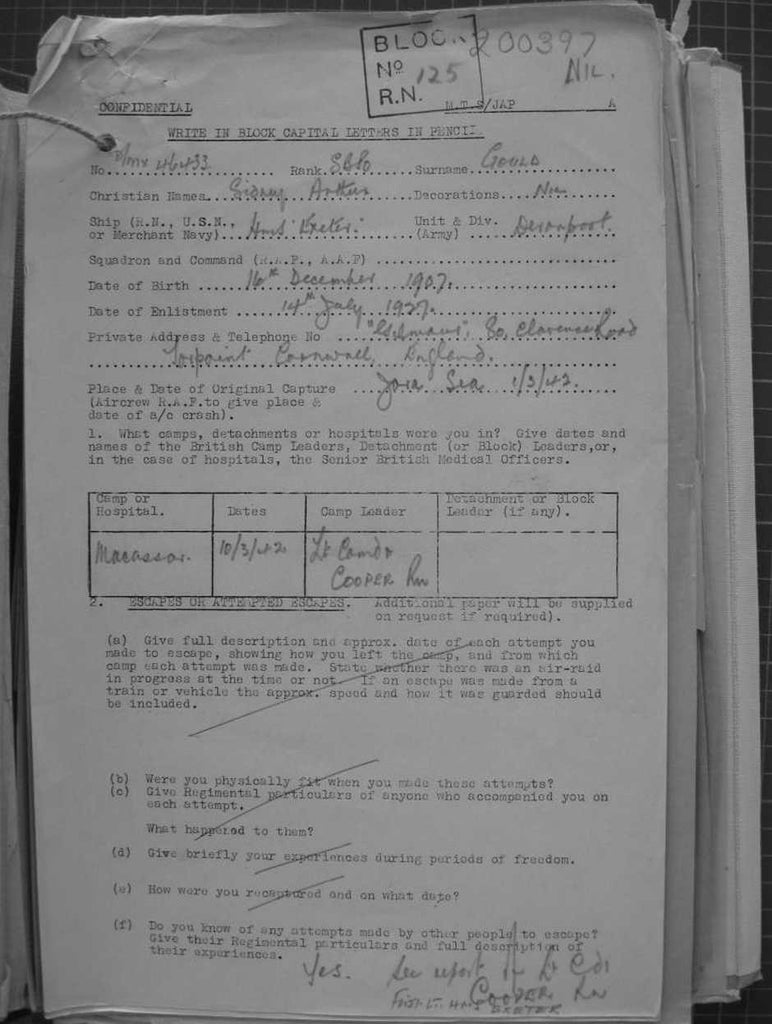 BLOCK 200397
Nº 125 NIL.
R.N.
CONFIDENTIAL M.T.S/JAP A
WRITE IN BLOCK CAPITAL LETTERS IN PENCIL.
No. D/MX 46433 Rank. Surname. GOULD
Christian Names. Sidney Arthur Decorations. Nil
Ship (R.N., U.S.N., or Merchant Navy). HMS "Exeter." Unit & Div. (Army) Devonport.
Squadron and Command (R.A.F., A.A.F)
Date of Birth 16th December 1907.
Date of Enlistment 14th July 1927.
Private Address & Telephone No 80, Clarence Road
Torpoint Cornwall, England.
Place & Date of Original Capture Java Sea 1/3/42.
(Aircrew R.A.F. to give place &
date of a/c crash).
1. What camps, detachments or hospitals were you in? Give dates and
names of the British Camp Leaders, Detachment (or Block) Leaders,or,
in the case of hospitals, the Senior British Medical Officers.
Camp or Hospital. Dates Camp Leader Detachment or Block Leader (if any).
Macassar. 10/3/42 Lt Comdr
COOPER RN
2. ESCAPES OR ATTEMPTED ESCAPES. Additional paper will be supplied
on request if required).
(a) Give full description and approx. date of each attempt you
made to escape, showing how you left the camp, and from which
camp each attempt was made. State whether there was an air-raid
in progress at the time or not. If an escape was made from a
train or vehicle the approx. speed and how it was guarded should
be included.
(b) Were you physically fit when you made these attempts?
(c) Give Regimental particulars of anyone who accompanied you on
each attempt.
What happened to them?
(d) Give briefly your experiences during periods of freedom.
(e) How were you recaptured and on what date?
(f) Do you know of any attempts made by other people to escape?
Give their Regimental particulars and full description of
their experiences.
Yes. See report of Lt Cdr
COOPER RN
FIRST LT. HMS EXETER